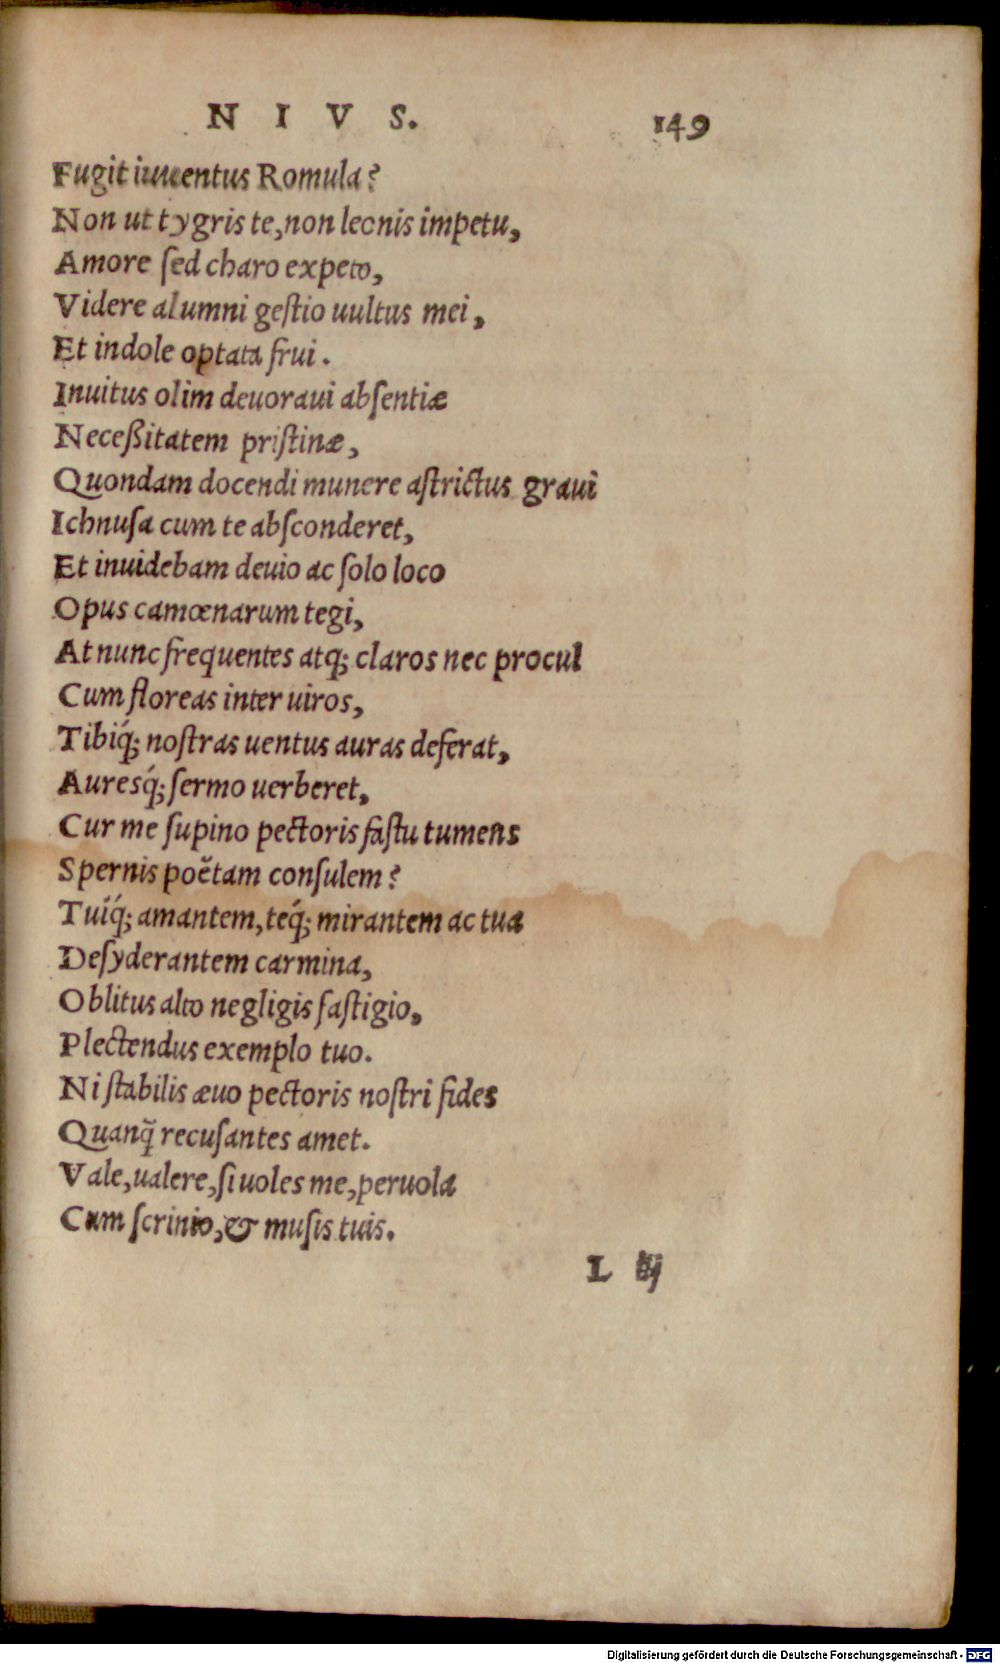 N I V S. 149
Fugit iuuentus Romula?
Non ut tygris te, non leonis impetu,
Amore ſed charo expeto,
Videre alumni geſtio uultus mei,
Et indole optata frui.
Inuitus olim deuoraui abſentiæ
Neceßitatem priſtinæ,
Quondam docendi munere aſtrictus graui
Ichnuſa cum te abſconderet,
Et inuidebam deuio ac ſolo loco
Opus camœnarum tegi,
At nunc frequentes atq; claros nec procul
Cum floreas inter uiros,
Tibiq́; noſtras uentus auras deferat,
Aureśq; ſermo uerberet,
Cur me ſupino pectoris faſtu tumens
Spernis poëtam conſulem?
Tuiq́; amantem, teq́; mirantem ac tua
Deſyderantem carmina,
Oblitus alto negligis faſtigio,
Plectendus exemplo tuo.
Ni ſtabilis æuo pectoris noſtri fides
Quanq̃ recuſantes amet.
Vale, ualere, ſi uoles me, peruola
Cum ſcrinio, & muſis tuis.
L
Digitalisierung gefördert durch die Deutsche Forschungsgemeinschaft - DFG